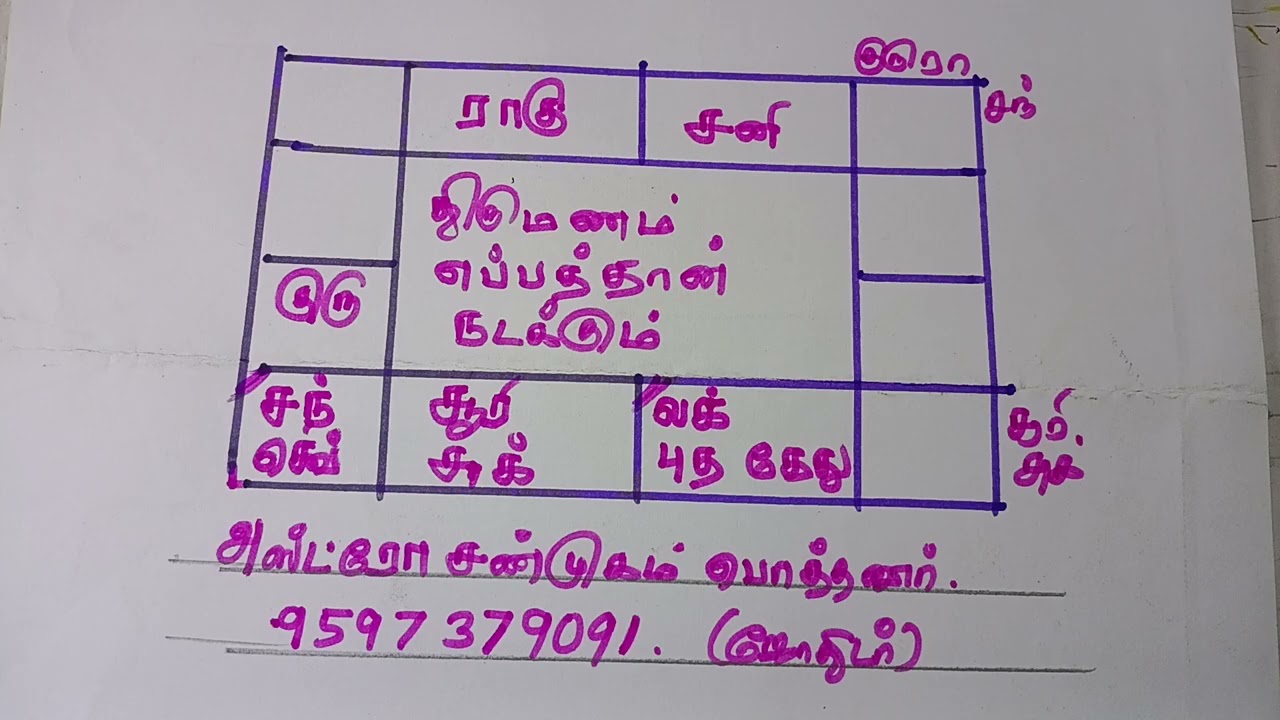 குரு ரா
சந்
ராகு சனி
திருமணம்
எப்பத்தான்
நடக்கும்
குரு
சந் சூரி லக்
செவ் சுக் புத கேது
சூரி.
சுக
அஸ்ட்ரோ சண்முகம் பொத்தனூர்.
9597379091. (ஜோதிடர்)